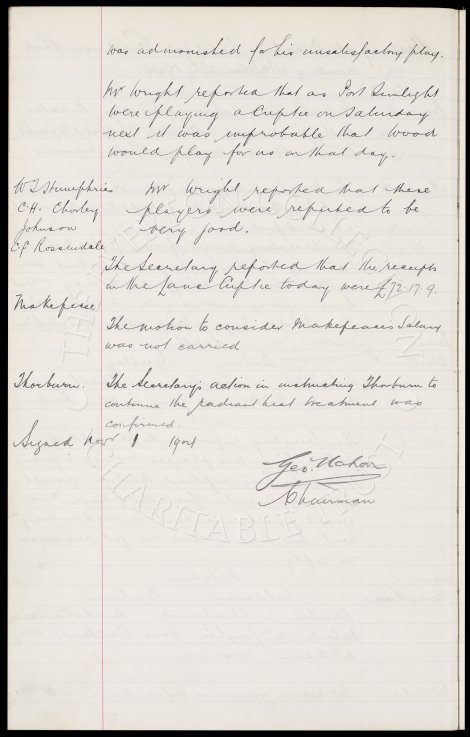 was admonished for his unsatisfactory play.
Mr Wright reported that as Port Sunlight
were playing a Cuptie on Saturday
next it was improbable that Wood
would play for us on that day.
W J Humphries
C H. Chorley
Johnson
C F Rossendale
Mr Wright reported that these
players were reputed to be
very good.
The Secretary reported that the receipts
in the Lancs Cuptie today were £72.17.9.
Makepeace
The motion to consider Makepeaces Salary
was not carried
Thorburn.
The Secretary's action in instructing Thorburn to
continue the radiant heat treatment was
confirmed.
Signed Novr 1 1904
Geo. Mahon
Chairman
THE EVERTON COLLECTION
CHARITABLE TRUST